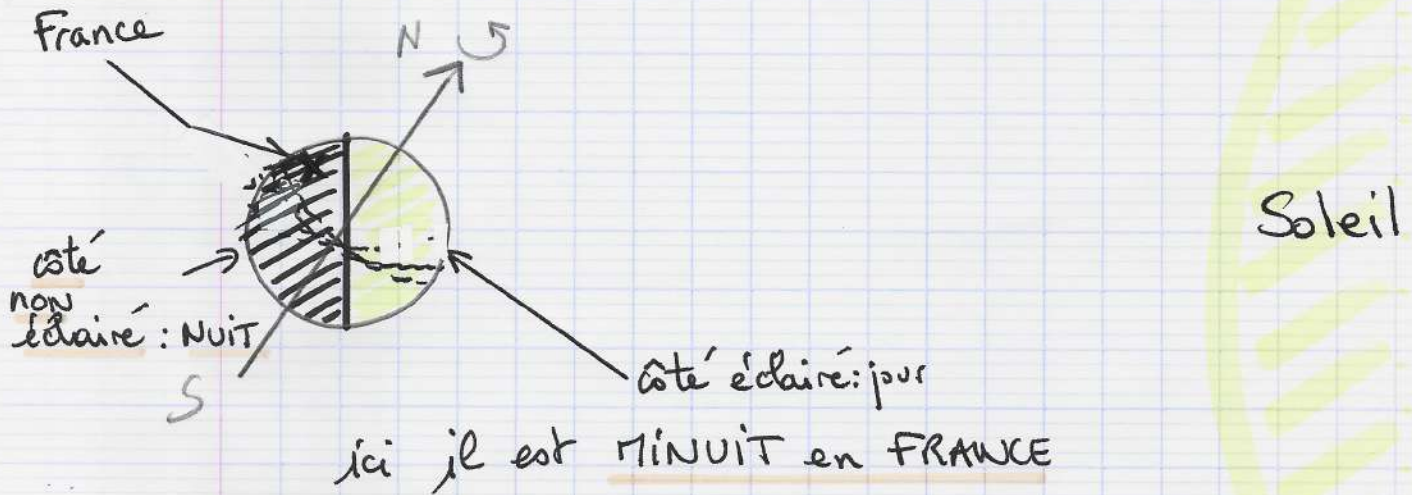 France
N
Soleil
côté
non
éclairé : NUIT
S
côté éclairé : jour
ici il est MINUIT en FRANCE